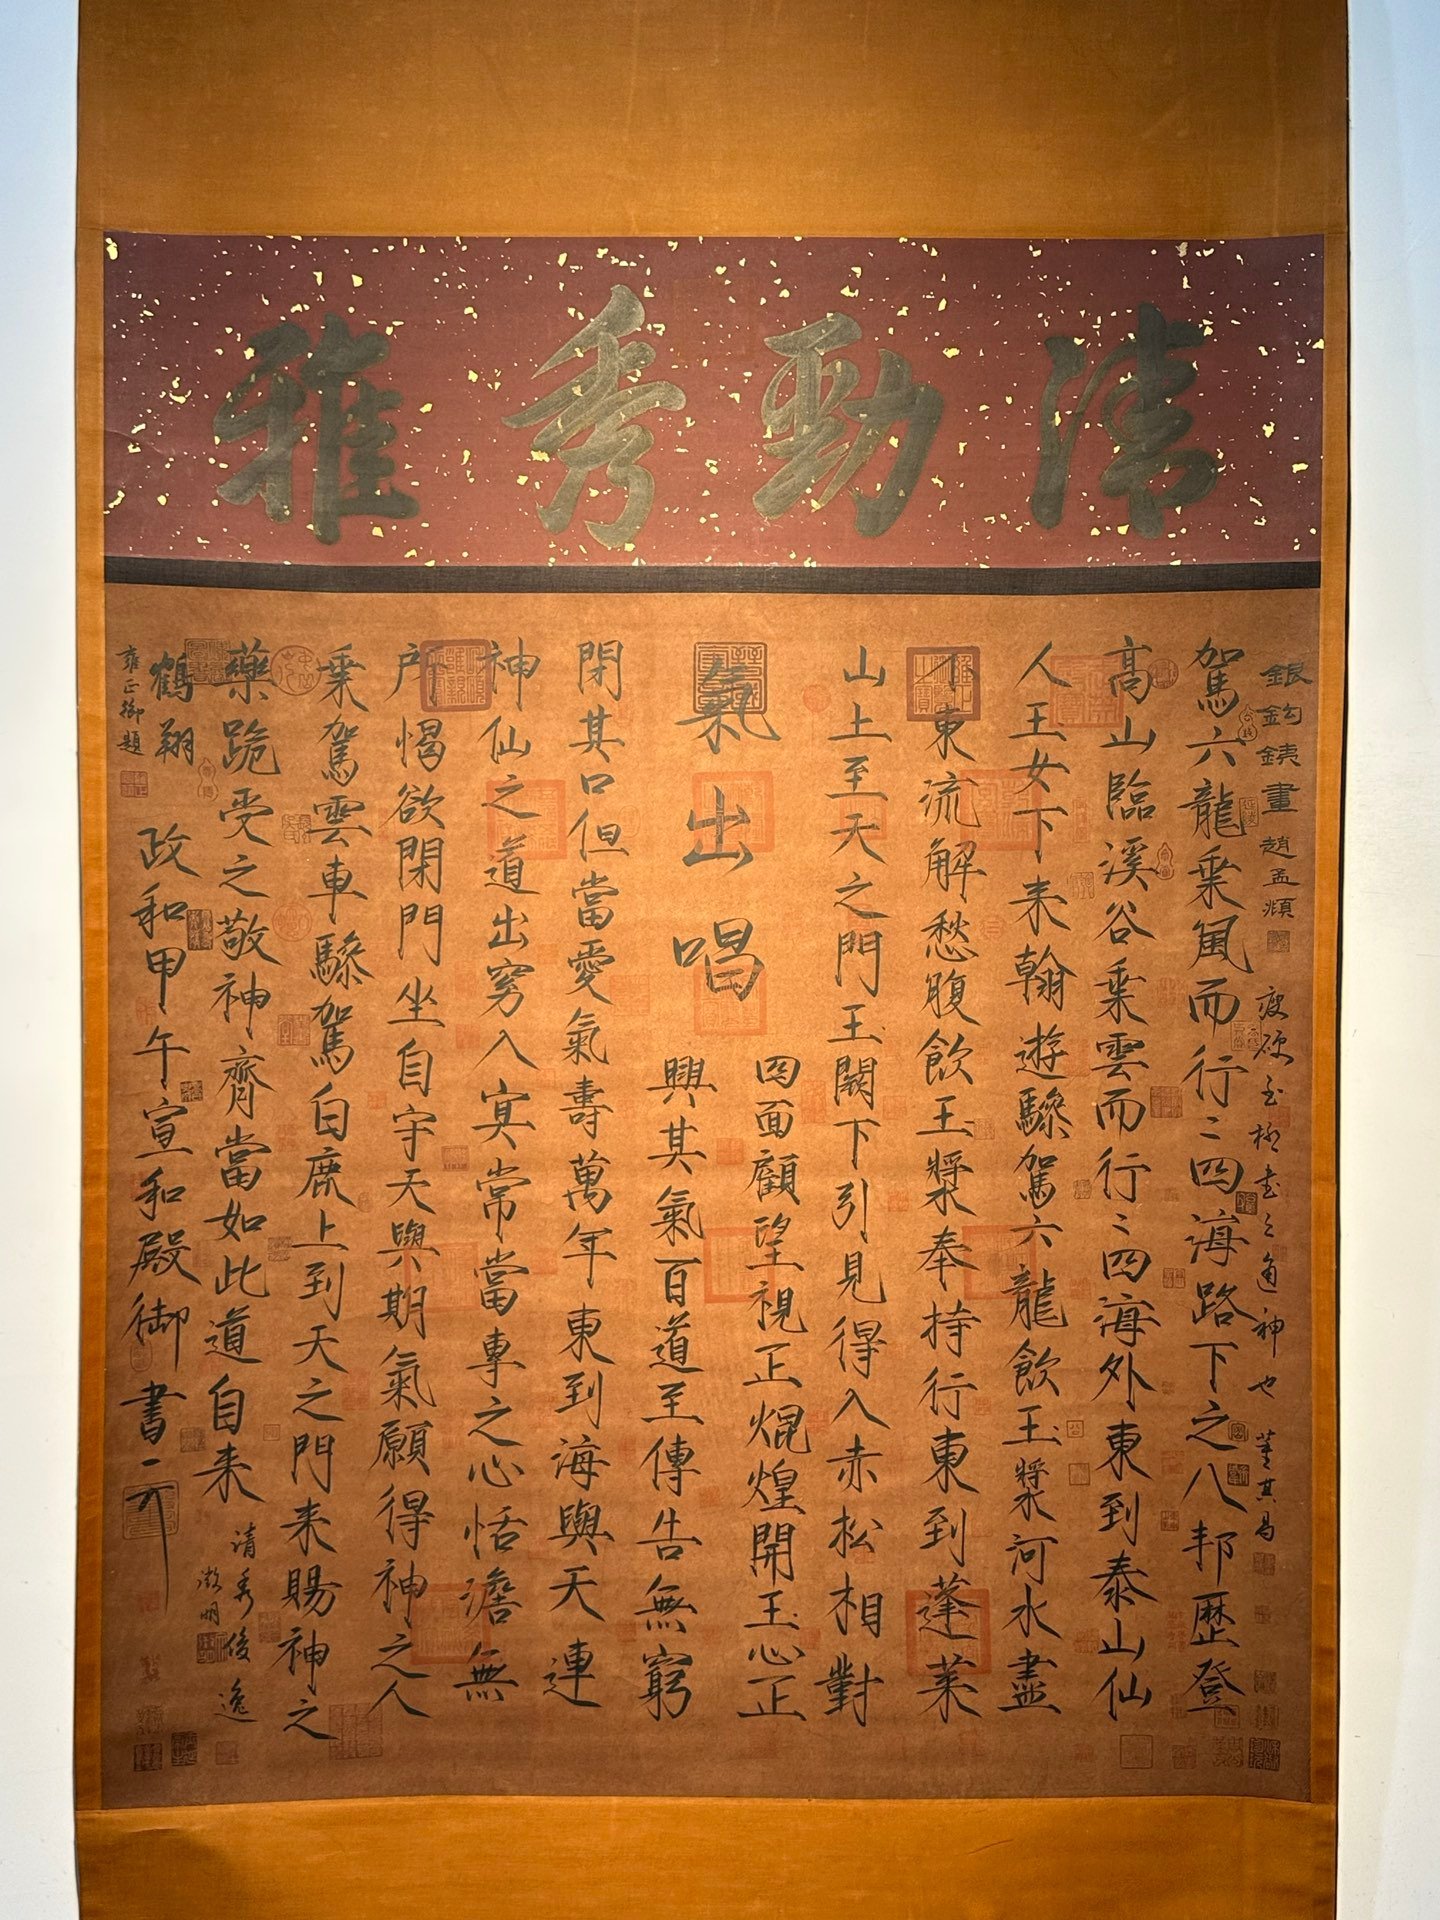 清勁秀雅
銀鈎銕畫趙孟頫
瘦硬至極書之通神也董其昌
駕六龍乗風而行〻四海路下之八邦歴登
高山臨溪谷乗雲而行〻四海外東到泰山仙
人玉女下来翱遊驂駕六龍飲玉漿河水盡
不東流解愁腹飲玉漿奉持行東到蓬莱
山上至天之門玉闕下引見得入赤松相對
四面顧望視正焜煌開玉心正
氣出唱
興其氣百道至傳告無窮
閉其口但當愛氣壽萬年東到海與天連
神仙之道出窮入冥常當專之心恬澹無
所愒欲閉門坐自守天與期氣願得神之人
乗駕雲車驂駕白鹿上到天之門来賜神之
藥跪受之敬神齊當如此道自来
清秀俊逸
徵明
政和甲午宣和殿御書
鶴翔
雍正御題